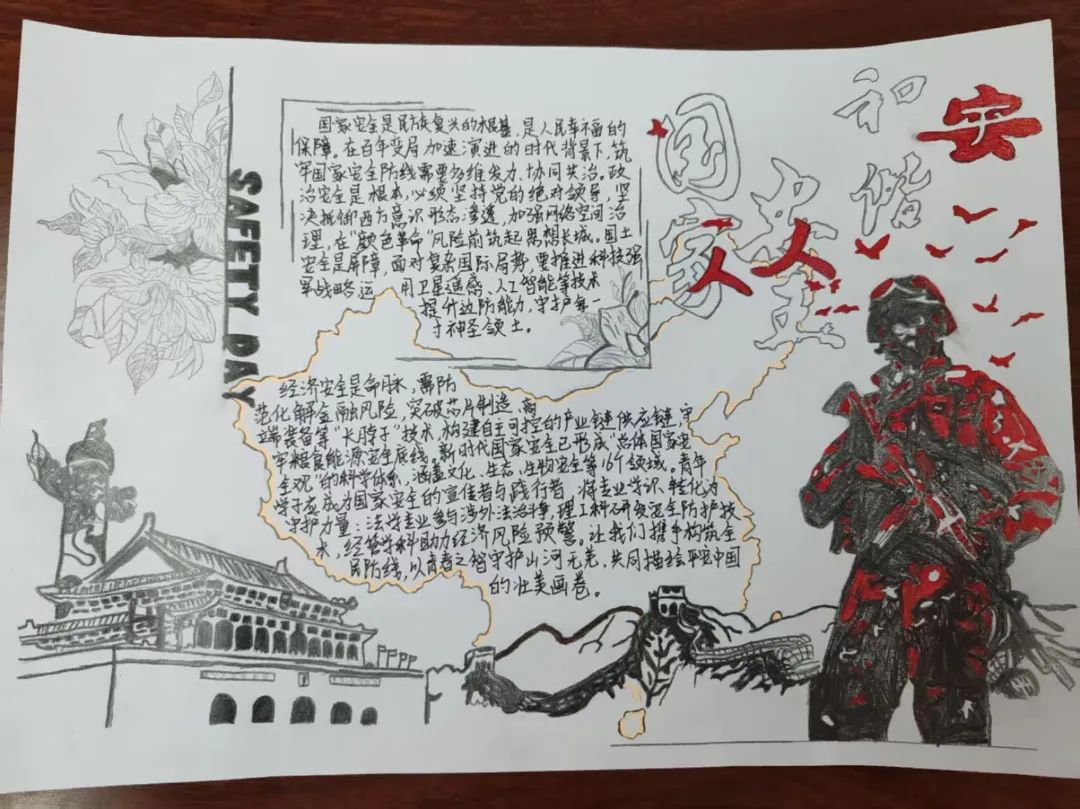 国家
安全
和谐
安
SAFETY DAY
国家安全是民族复兴的根基，是人民幸福的
保障。在百年变局加速演进的时代背景下，筑
牢国家安全防线需要多维发力、协同共治。政
治安全是根本，必须坚持党的绝对领导，坚
决抵御西方意识形态渗透，加强网络空间治
理，在"颜色革命"风险前筑起思想长城。国土
安全是屏障，面对复杂国际局势，要推进科技强
军战略运用卫星遥感、人工智能等技术
提升边防能力，守护每一
寸神圣领土。
经济安全是命脉，需防
范化解金融风险，突破芯片制造、高
端装备等"卡脖子"技术，构建自主可控的产业链供应链，守
牢粮食能源安全底线。新时代国家安全已形成"总体国家安
全观"的科学体系，涵盖文化、生态、生物安全等16个领域。青年
学子应成为国家安全的宣传者与践行者，将专业学识转化为
守护力量：法学专业参与涉外法治斗争，理工科研发安全防护技
术，经管学科助力经济风险预警。让我们携手构筑全
民防线，以青春之智守护山河无恙，共同描绘平安中国
的壮美画卷。